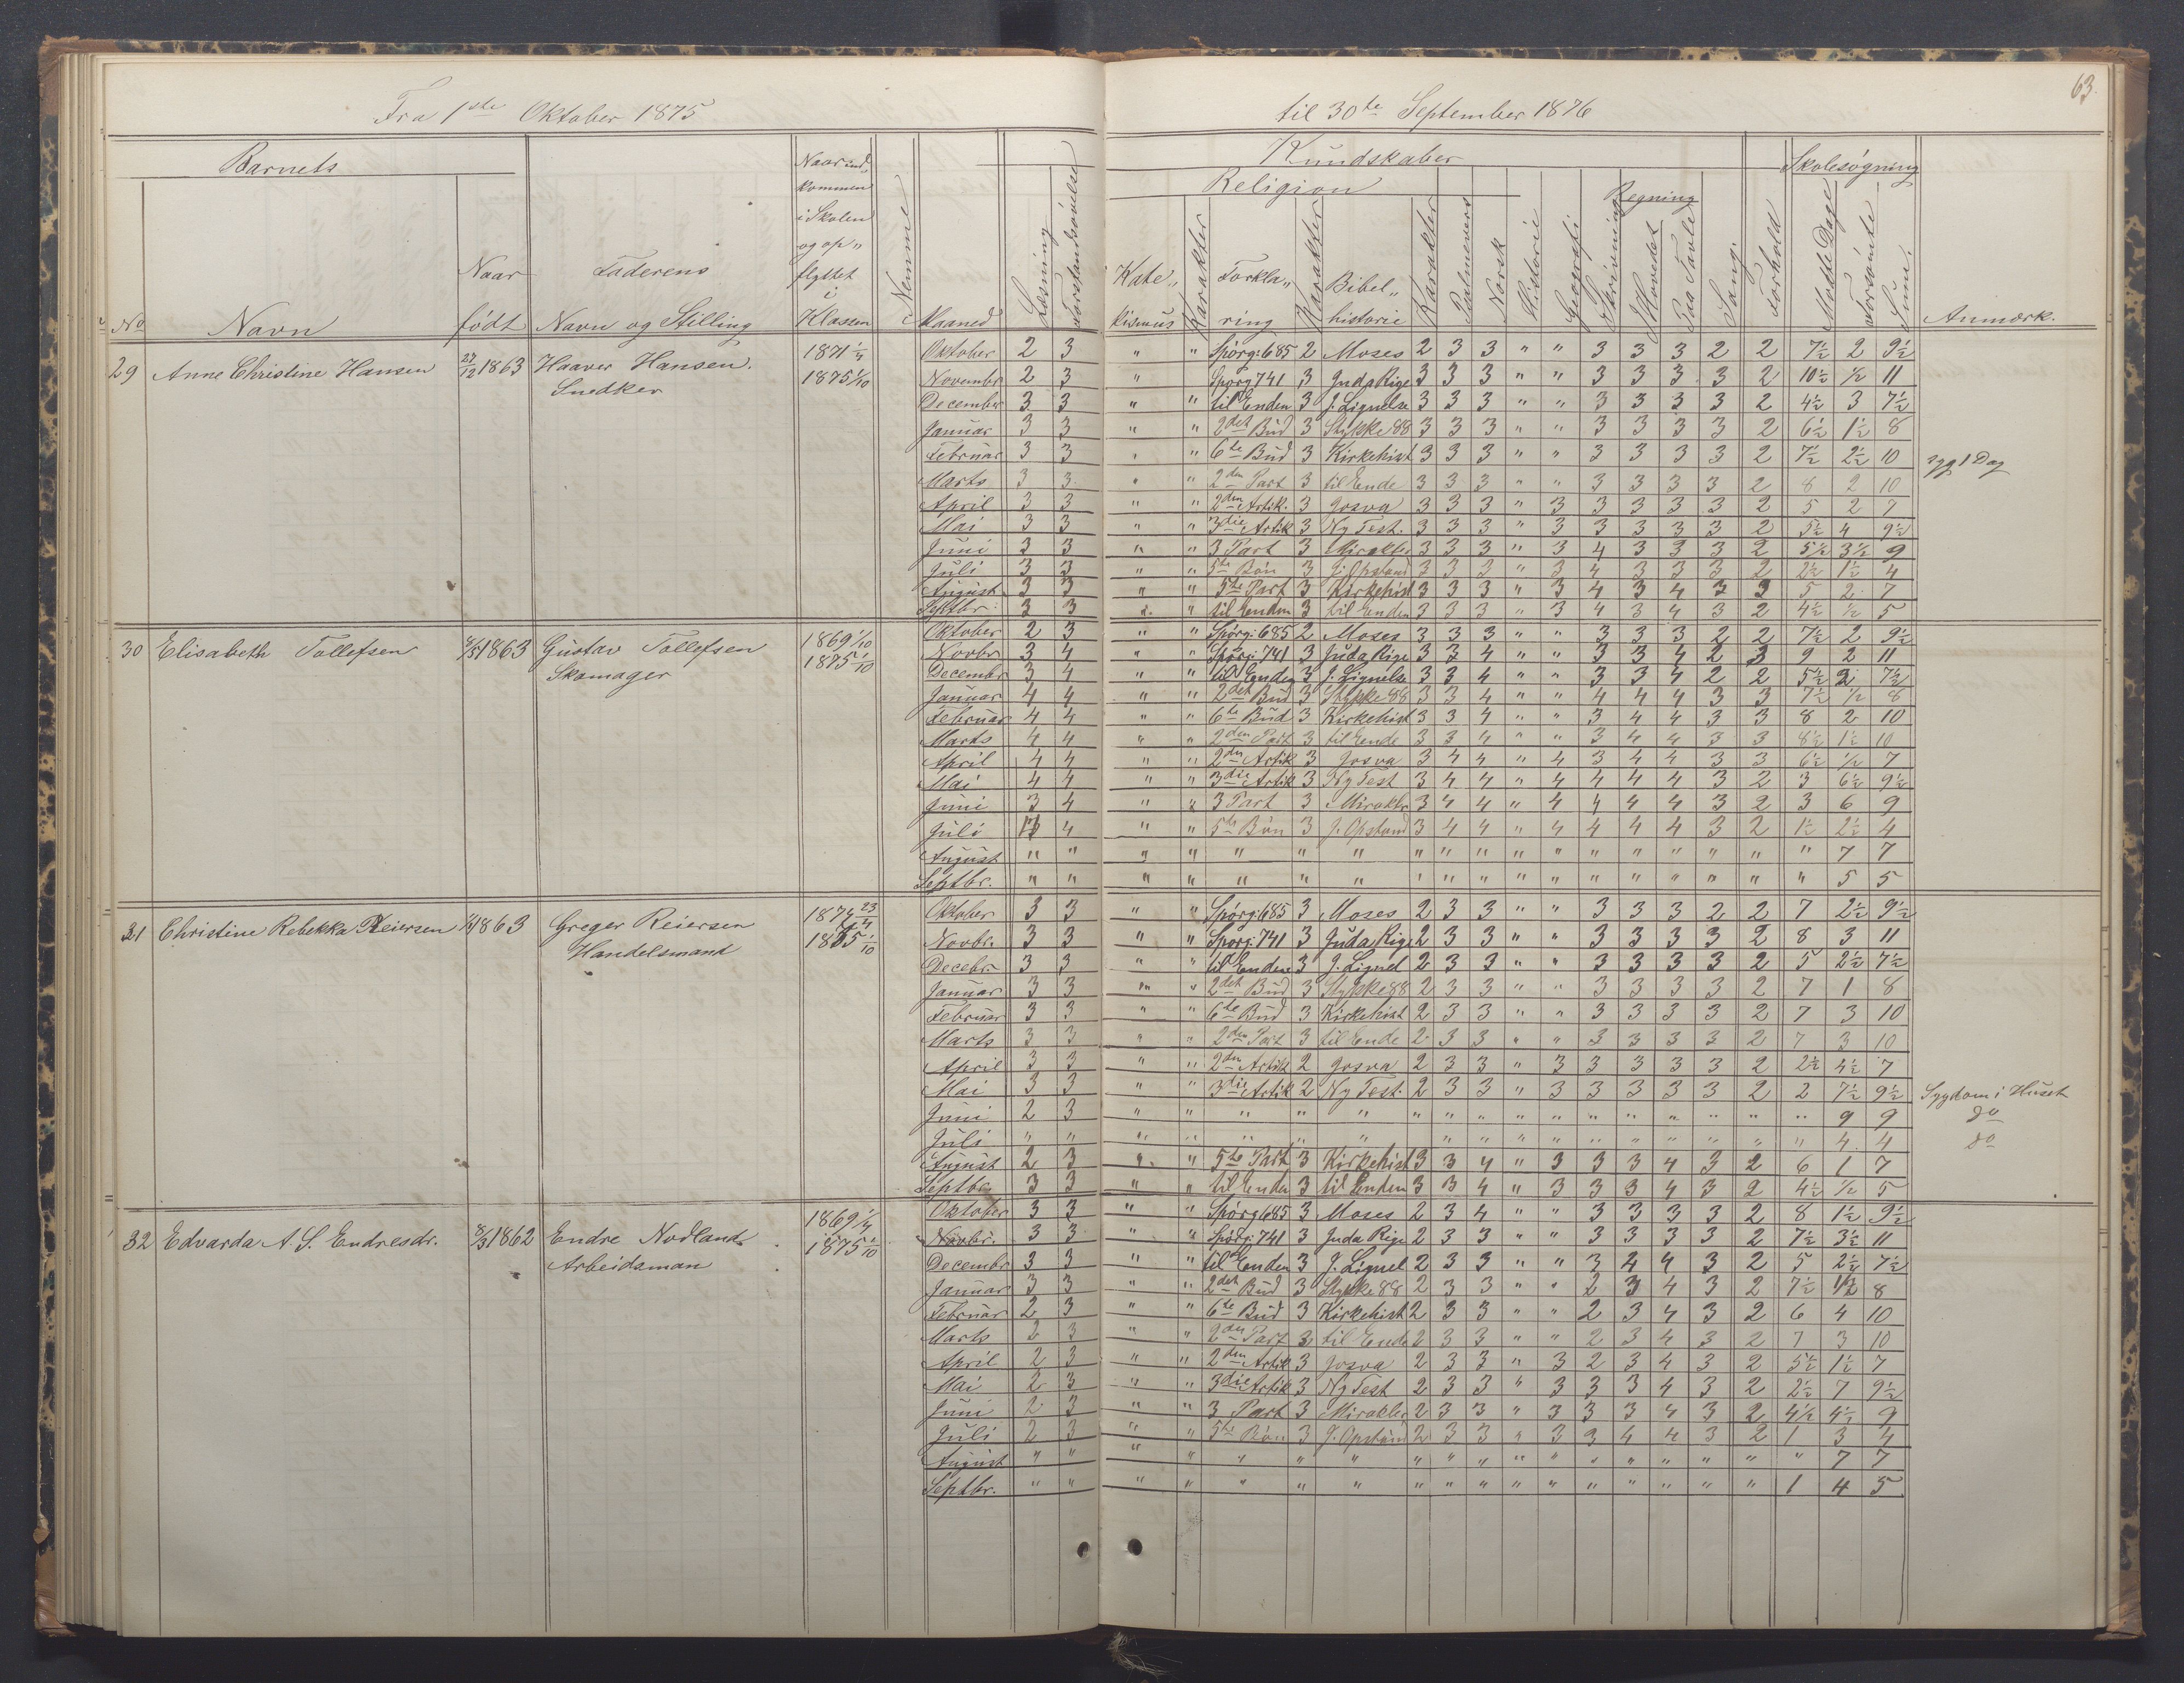 63.
Fra 1ste Oktober 1875 til 30te September 1876
Barnets Naar ind Kundskaber Skolesøgning
kommen Religion Regning
i Skolen
og op„
Naar Faderens flyttet Kate„ Forkla„ Bibel„
i
No Navn født Navn og Stilling Klassen Nemme Maaned Læsning Forstandsøvelse kismus Karakter ring Karakter historie Karakter Psalmevers Norsk Historie Geografi Skrivning Hovedet Paa Tavle Sang. Forhold Mødte Dage Forsømte Sum. Anmærk.
29 Anne Christine Hansen 27/12 1863 Haaver Hansen. 1871 1/4 Oktober 2 3 " " Spørg: 685 2 Moses 2 3 3 " " 3 3 3 2 2 7½ 2 9½
Snedker 1875 1/10 Novembr 2 3 " " Spørg 741 3 Juda Rige 3 3 3 " " 3 3 3 3 2 10½ ½ 11
December 3 3 " " til Enden 3 J. Lignelse 3 3 3 " " 3 3 3 3 2 4½ 3 7½
Januar 3 3 " " 2det Bud 3 Stykke 88 3 3 3 " " 3 3 3 3 2 6½ 1½ 8
Februar 3 3 " " 6te Bud 3 Kirkehist 3 3 3 " " 3 3 3 3 2 7½ 2½ 10 syg 1 Dag
Marts 3 3 " " 2den Part 3 til Ende 3 3 3 " " 3 3 3 3 2 8 2 10
April 3 3 " " 2den Artik. 3 Josva 3 3 3 " 3 3 3 3 3 2 5 2 7
Mai 3 3 " " 3die Artik 3 Ny Test. 3 3 3 " 3 3 3 3 3 2 5½ 4 9½
Juni 3 3 " " 3 Part 3 Mirakler 3 3 3 " 3 4 3 3 3 2 5½ 3½ 9
Juli 3 3 " " 5te Bøn 3 J. Opstand 3 3 3 " 3 4 3 3 3 2 2½ 1½ 4
August 3 3 " " 5te Part 3 Kirkehist 3 3 3 " 3 4 3 4 3 3 5 2 7
Septbr. 3 3 " " til Enden 3 til Enden 3 3 3 " 3 4 3 4 3 2 4½ ½ 5
30 Elisabeth Tollefsen 1863 Gustav Tollefsen 1869 1/10 Oktober 2 3 " " Spørg: 685 2 Moses 3 3 3 " " 3 3 3 2 2 7½ 2 9½
Skomager 1875 1/10 Novbr 3 4 " " Spørg: 741 3 Juda Rige 3 3 4 " " 3 3 4 2 3 9 2 11
Decembr 3 4 " " til Enden 3 J. Lignelse 3 3 4 " " 3 3 4 2 2 5½ 2 7½
Januar 4 4 " " 2det Bud 3 Stykke 88 3 3 4 " " 4 4 4 3 3 7½ ½ 8
Februar 4 4 " " 6te Bud 3 Kirkehist 3 3 4 " " 3 4 4 3 3 8 2 10
Marts 4 4 " " 2den Part 3 til Ende 3 3 4 " " 3 4 4 3 3 8½ 1½ 10
April 4 4 " " 2den Artik 3 Josva 3 4 4 " 4 3 4 4 3 3 6½ ½ 7
Mai 4 4 " " 3die Artik 3 Ny Test 3 4 4 " 4 4 4 4 3 2 3 6½ 9½
Juni 3 4 " " 3 Part 3 Mirakler 3 4 4 " 4 4 4 4 3 2 3 6 9
Juli 4 " " 5te Bøn 3 J. Opstand 3 4 4 " 4 4 4 4 3 2 1½ 2½ 4
August " " " " " " " " " " " " " " " " " " 7 7
Septbr. " " " " " " " " " " " " " " " " " " 5 5
31 Christine Rebekka Reiersen 1863 Greger Reiersen 1874 23/4 Oktober 3 3 " " Spørg: 685 3 Moses 2 3 3 " " 3 3 3 2 2 7 2½ 9½
Handelsmand 1875 1/10 Novbr. 3 3 " " Spørg: 741 3 Juda Rige 2 3 3 " " 3 3 3 3 2 8 3 11
Decebr. 3 3 " " til Enden 3 J. Lignel 2 3 3 " " 3 3 3 3 2 5 2½ 7½
Januar 3 3 " " 2det Bud 3 Stykke 88 2 3 3 " " 3 3 3 3 2 7 1 8
Februar 3 3 " " 6te Bud 3 Kirkehist 2 3 3 " " 3 3 3 3 2 7 3 10
Marts 3 3 " " 2den Part 3 til Ende 2 3 3 " " 3 3 3 3 2 7 3 10
April 3 3 " " 2den Artik 2 Josva 2 3 3 " 3 3 3 3 3 2 2½ 4½ 7
Mai 3 3 " " 3die Artik 2 Ny Test. 2 3 3 " 3 3 3 3 3 2 2 7½ 9½ Sygdom i Huset
Juni 2 3 " " " " " " " " " " " " " " " " " 9 9 do
Juli " " " " " " " " " " " " " " " " " " 4 4 do
August 2 3 " " 5te Part 3 Kirkehist 3 3 4 " 3 3 3 4 3 2 6 1 7
Septbr 3 3 " " til Enden 3 til Enden 3 3 4 " 3 3 3 4 3 2 4½ ½ 5
32 Edvarda A. S. Endresdr. 1862 Endre Nodland 1869 1/4 Oktober 3 3 " " Spørg 685 3 Moses 2 3 4 " " 3 3 3 3 2 8 1½ 9½
Arbeidsman 1875 1/10 Novbr. 3 3 " " Spørg: 741 3 Juda Rige 2 3 3 " " 3 3 3 3 2 7½ 3½ 11
Decembr 3 3 " " til Enden 3 J. Lignel 2 3 3 " " 3 4 4 3 2 5 2½ 7½
Januar 3 3 " " 2det Bud 3 Stykke 88 2 3 3 " " 2 3 4 3 2 7½ ½ 8
Februar 2 3 " " 6te Bud 3 Kirkehist 2 3 3 " " 2 3 4 3 2 6 4 10
Marts 2 3 " " 2den Part 3 til Ende 2 3 3 " " 2 3 4 3 2 7 3 10
April 2 3 " " 2den Artik 3 Josva 2 3 3 " 3 2 3 4 3 2 5½ 1½ 7
Mai 2 3 " " 3die Artik 3 Ny Test 2 3 3 " 3 3 3 4 3 2 2½ 7 9½
Juni 2 3 " " 3 Part 3 Mirakler 2 3 3 " 3 3 3 4 3 2 4½ 4½ 9
Juli 2 3 " " 5te Bøn 3 J. Opstand 2 3 3 " 3 3 4 4 3 2 1 3 4
August " " " " " " " " " " " " " " " " " " 7 7
Septbr. " " " " " " " " " " " " " " " " " 1 4 5